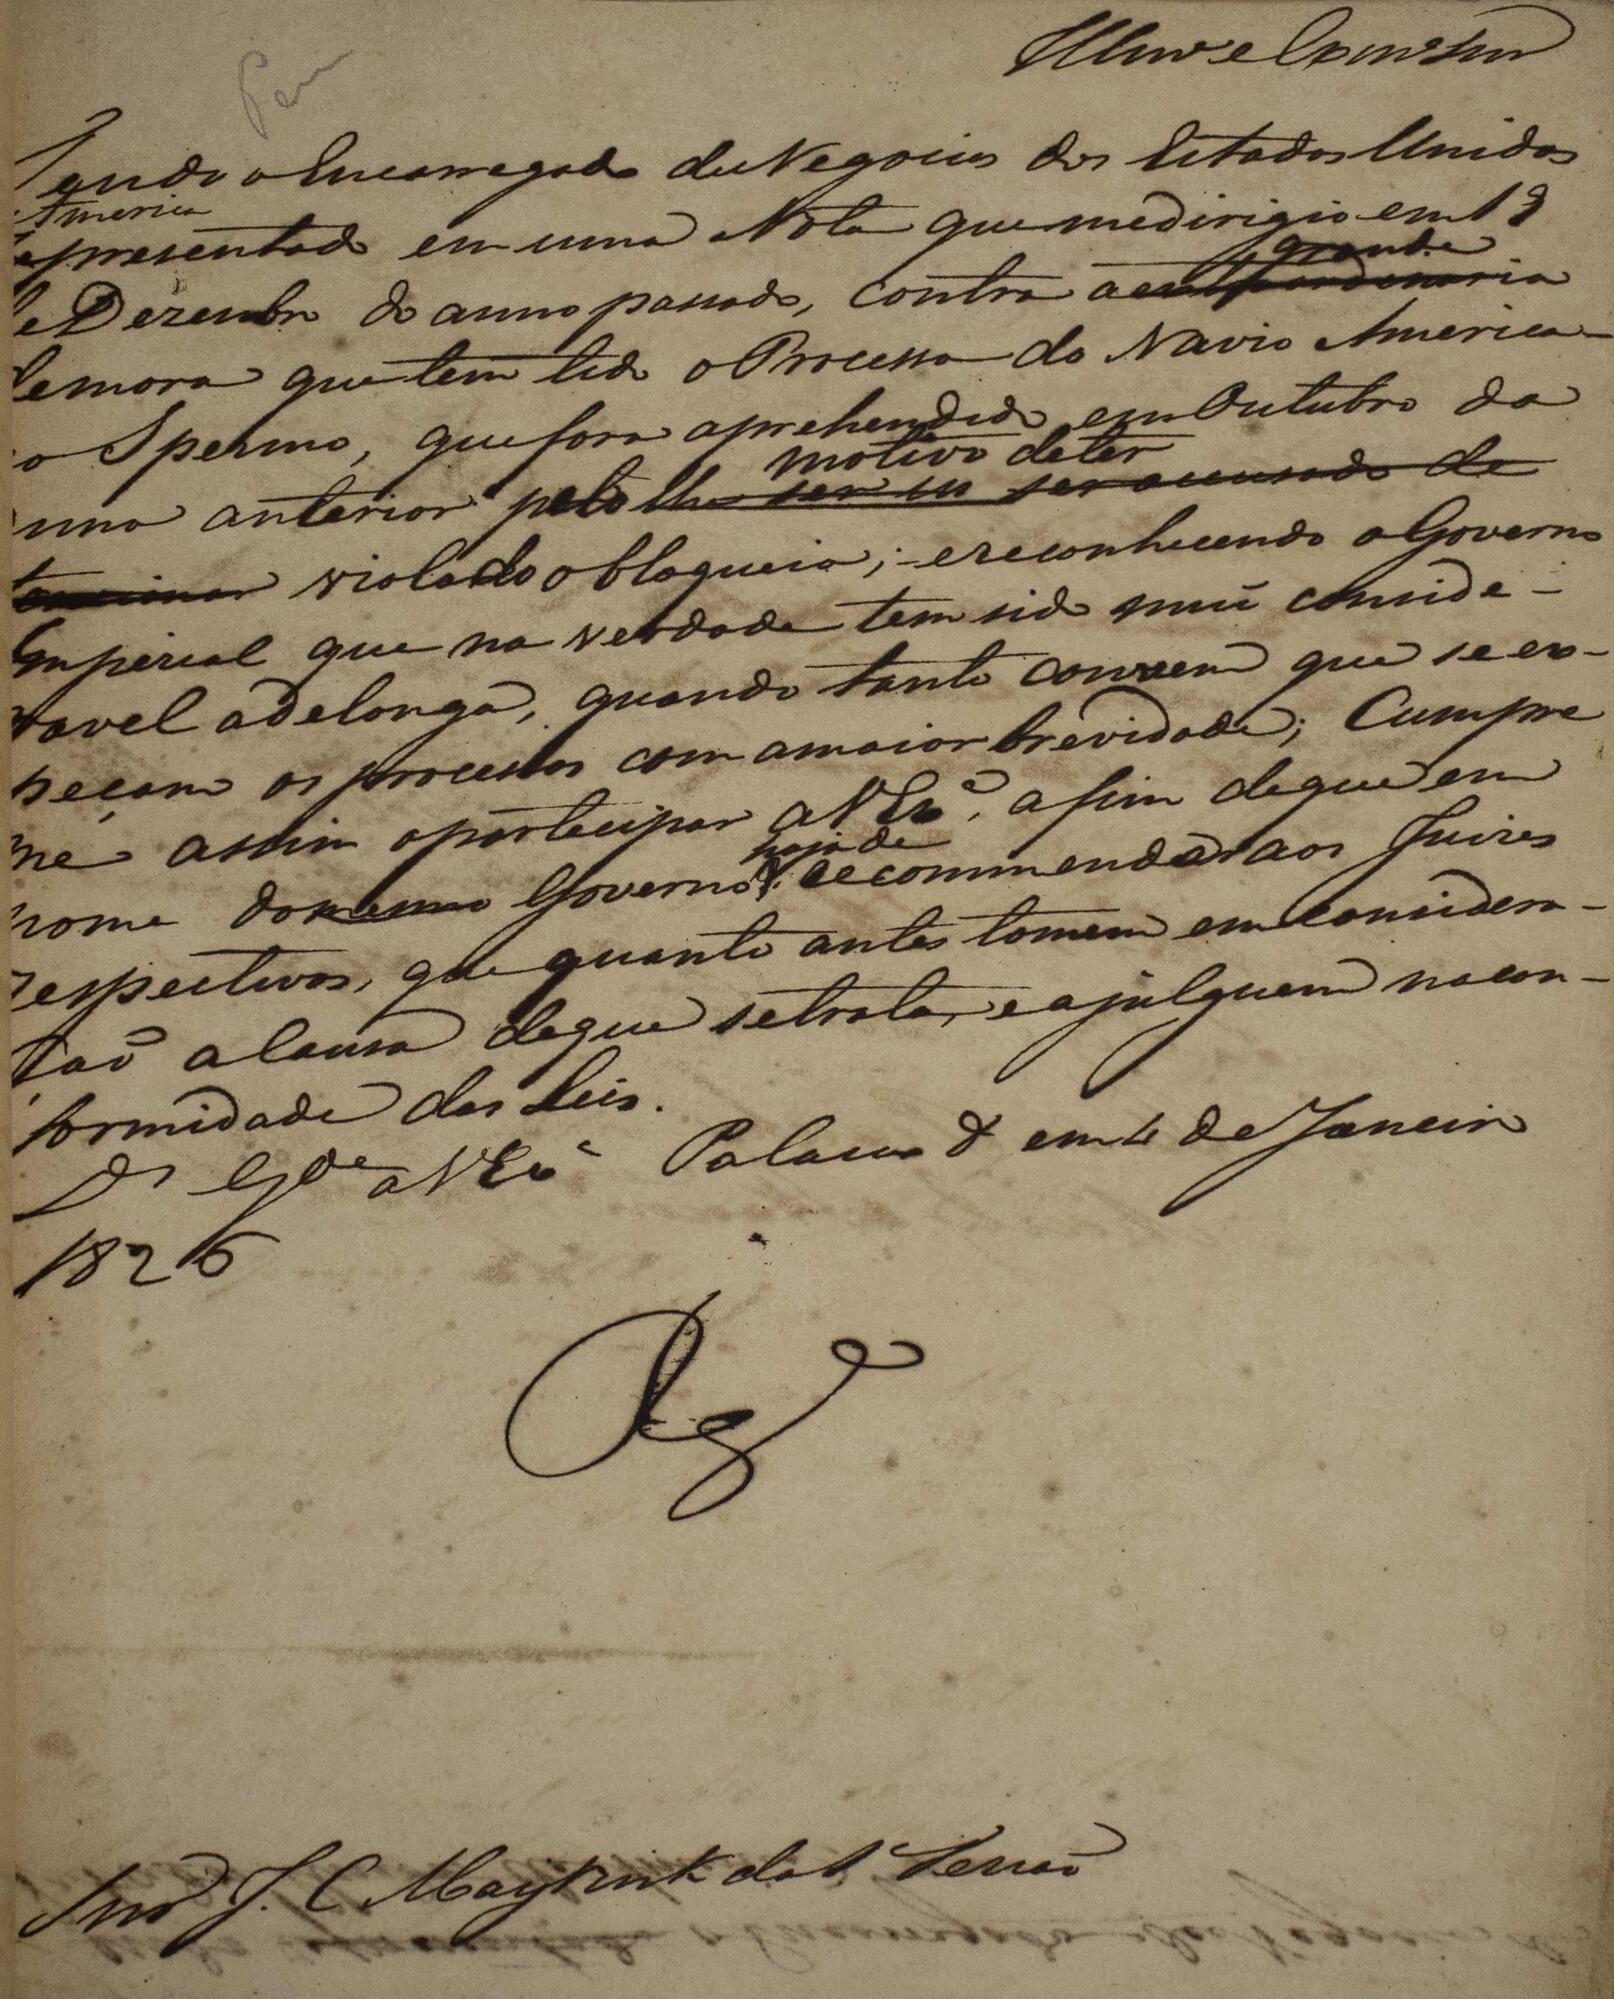 Per
Illmo e Exmo Snr
Tendo o Encarregado de Negocios dos Estados Unidos
America
representado em uma Nota que me dirigio em 18
grande
de Dezembro do anno passado, contra a extraordinaria
demora que tem tido o Processo do Navio America-
o Spermo, que fora aprehendido em Outubro do
motivo de ter
anno anterior pelo ser accusado de
violado o bloqueio; e reconhecendo o Governo
Imperial que na verdade tem sido mui conside-
ravel a delonga, quando tanto convem que se ex-
peçam os processos com a maior brevidade; Cumpre
me assim o participar a V Exª, a fim de que em
haja de
nome do mesmo Governo recommendar aos Juizes
respectivos, que quanto antes tomem em considera-
ção a Causa de que se trata, e a julguem na con-
formidade das Leis.
Ds Gde a V Exª Palacio & em 4 de Janeiro
1826
Snr J. C. Mayrink da S Ferrão